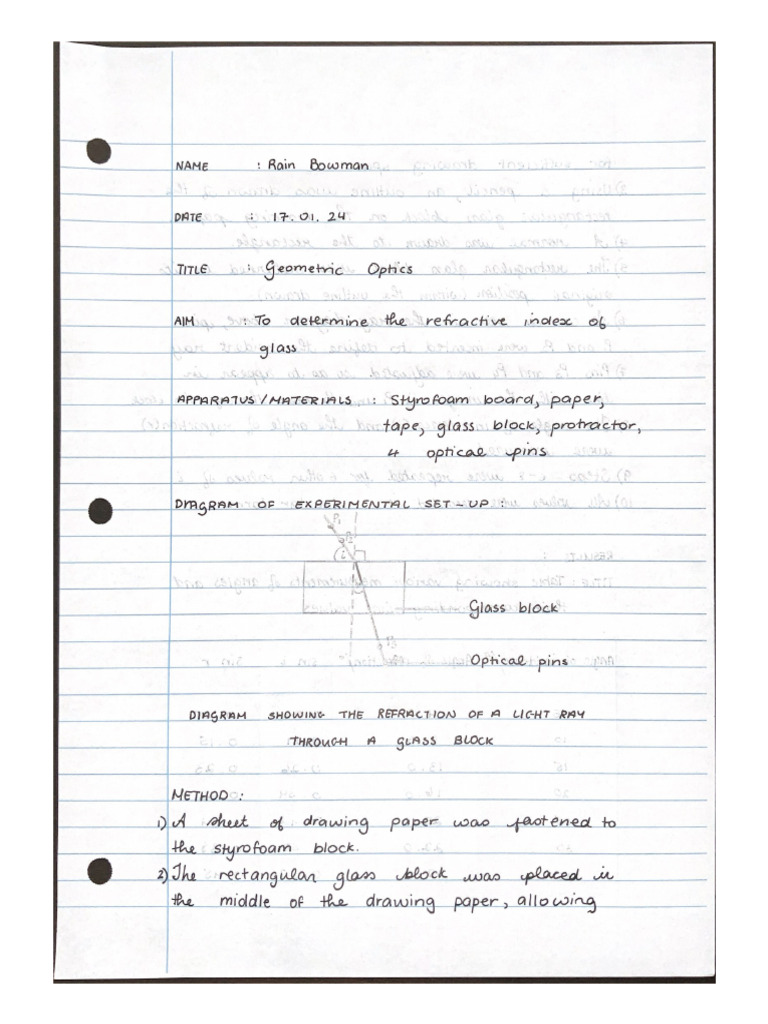 NAME : Rain Bowman
DATE : 17.01.24
TITLE : Geometric Optics
AIM : To determine the refractive index of
glass
APPARATUS/MATERIALS : Styrofoam board, paper,
tape, glass block, protractor,
4 optical pins
DIAGRAM OF EXPERIMENTAL SET-UP :
P1
P2
i
P3
Glass block
Optical pins
DIAGRAM SHOWING THE REFRACTION OF A LIGHT RAY
THROUGH A GLASS BLOCK
METHOD:
1) A sheet of drawing paper was fastened to
the styrofoam block.
2) The rectangular glass block was placed in
the middle of the drawing paper, allowing